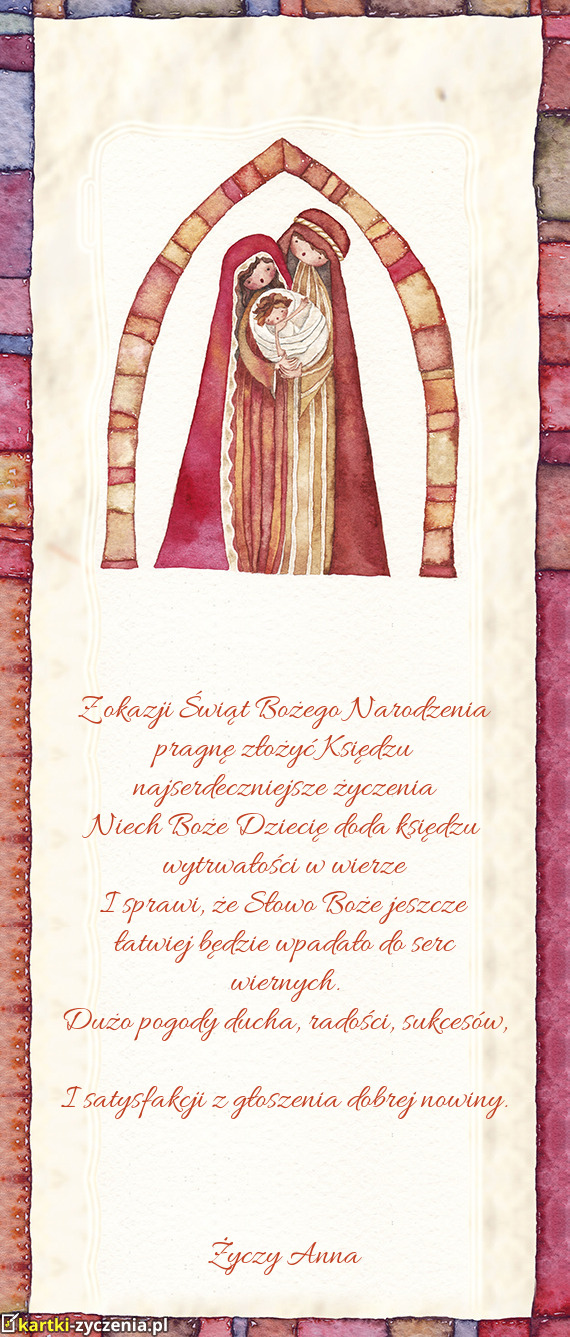 Z okazji Świąt Bożego Narodzenia
pragnę złożyć Księdzu
najserdeczniejsze życzenia
Niech Boże Dziecię doda księdzu
wytrwałości w wierze
I sprawi, że Słowo Boże jeszcze
łatwiej będzie wpadało do serc
wiernych.
Dużo pogody ducha, radości, sukcesów,
I satysfakcji z głoszenia dobrej nowiny.
Życzy Anna
kartki-zyczenia.pl